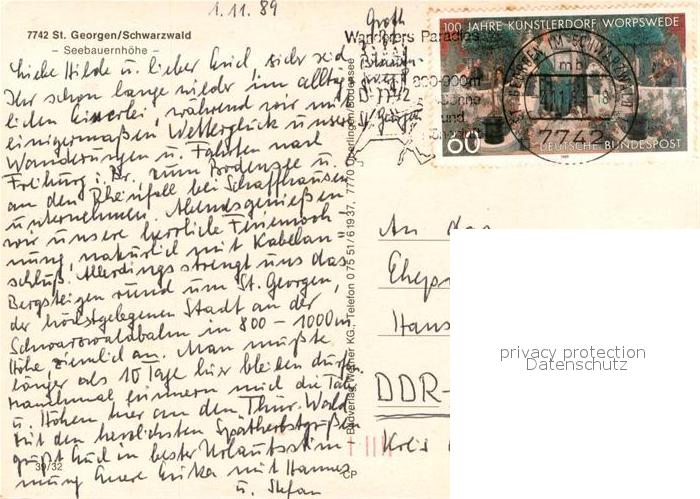 1.11.89
7742 St. Georgen/Schwarzwald
– Seebauernhöhe –
Liebe Hilde u. lieber Emil, sicher seid
Ihr schon lange wieder im alltäg-
lichen Einerlei, während wir mit
einigermaßen Wetterglück unsere
Wanderungen u. Fahrten nach
Freiburg i. Br., zum Bodensee u.
an den Rheinfall bei Schaffhausen
unternehmen. Abends genießen
wir unsere herrliche Ferienwoh-
nung, natürlich mit Kabelan-
schluß. Allerdings strengt uns das
Bergsteigen rund um St. Georgen,
der höchstgelegenen Stadt an der
Schwarzwaldbahn in 800 – 1000 m
Höhe, ziemlich an. Man müßte
länger als 10 Tage hier bleiben dürfen.
Manchmal erinnern mich die Täler
u. Höhen hier an den Thür. Wald.
Mit den herzlichsten Spätherbstgrüßen
grüßt Euch in bester Urlaubsstim-
mung Eure Erika mit Hannes
u. Stefan
39/32
Groth
D-7742
St. Georgen
Wanderers Paradies
800-900m
und
100 JAHRE KÜNSTLERDORF WORPSWEDE
60
DEUTSCHE BUNDESPOST
ST. GEORGEN IM SCHWARZWALD
mb
7742
Bildverlag Werner KG., Telefon 07551/61937, 7770 Überlingen/Bodensee
CP
An das
Ehep
Hans
DDR-
Kreis
privacy protection
Datenschutz